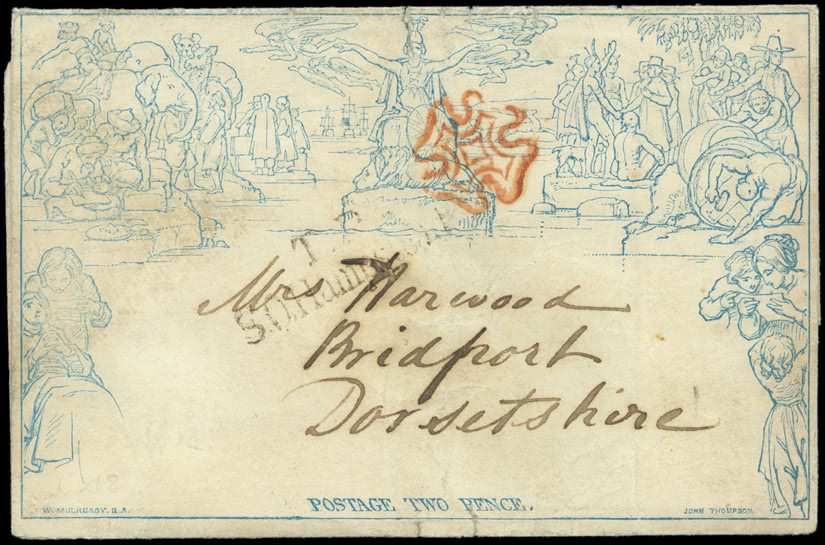 T P
Mrs Harwood
Bridport
Dorsetshire
POSTAGE TWO PENCE.
W. MULREADY. R.A.
JOHN THOMPSON.